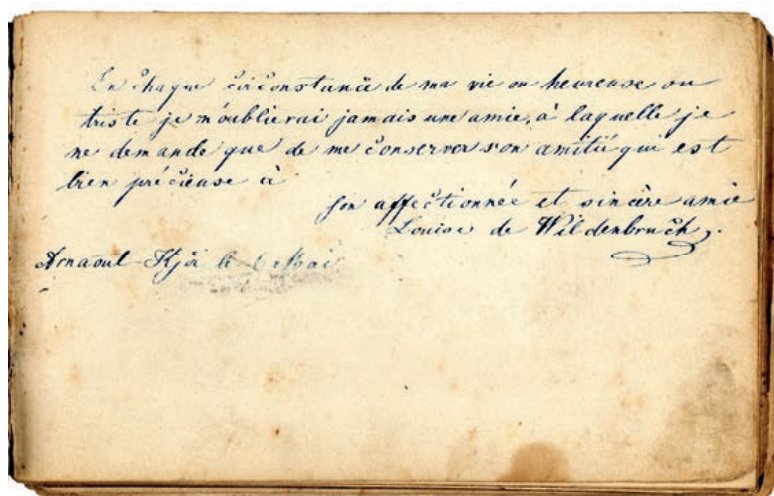 En chaque circonstance de ma vie ou heureuse ou
triste je n'oublierai jamais une amie, à laquelle je
ne demande que de me conserver son amitié qui est
bien précieuse à
son affectionnée et sincère amie
Louise de Wildenbruch.
Arnaout-Kjöi le Mai